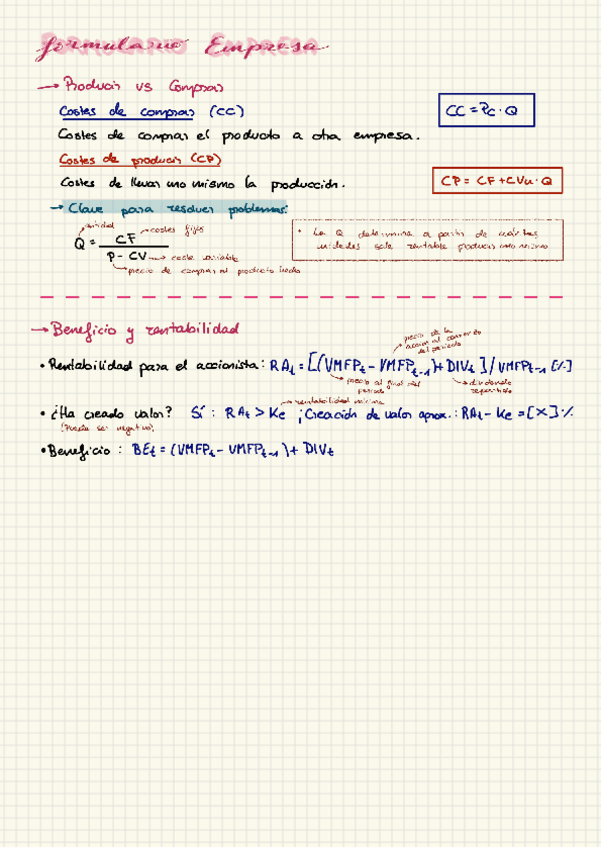 Formulario Empresa
→ Producir vs Comprar
Costes de comprar (CC)
CC = Pc · Q
Costes de comprar el producto a otra empresa.
Costes de producir (CP)
Costes de llevar uno mismo la producción.
CP = CF + CVu · Q
→ Clave para resolver problemas:
cantidad
costes fijos
Q = CF / P - CV
coste variable
precio de comprar el producto hecho
• La Q determina a partir de cuántas
unidades sale rentable producir uno mismo
→ Beneficio y rentabilidad
precio de la
acción al comienzo
del periodo
• Rentabilidad para el accionista: RAt = [(VMFPt - VMFPt-1) + DIVt] / VMFPt-1 [%]
precio al final del
periodo
dividendo
repartido
rentabilidad mínima
• ¿Ha creado valor? Sí: RAt > Ke ; Creación de valor aprox.: RAt - Ke = [X] %
(Puede ser negativo)
• Beneficio: BEt = (VMFPt - VMFPt-1) + DIVt